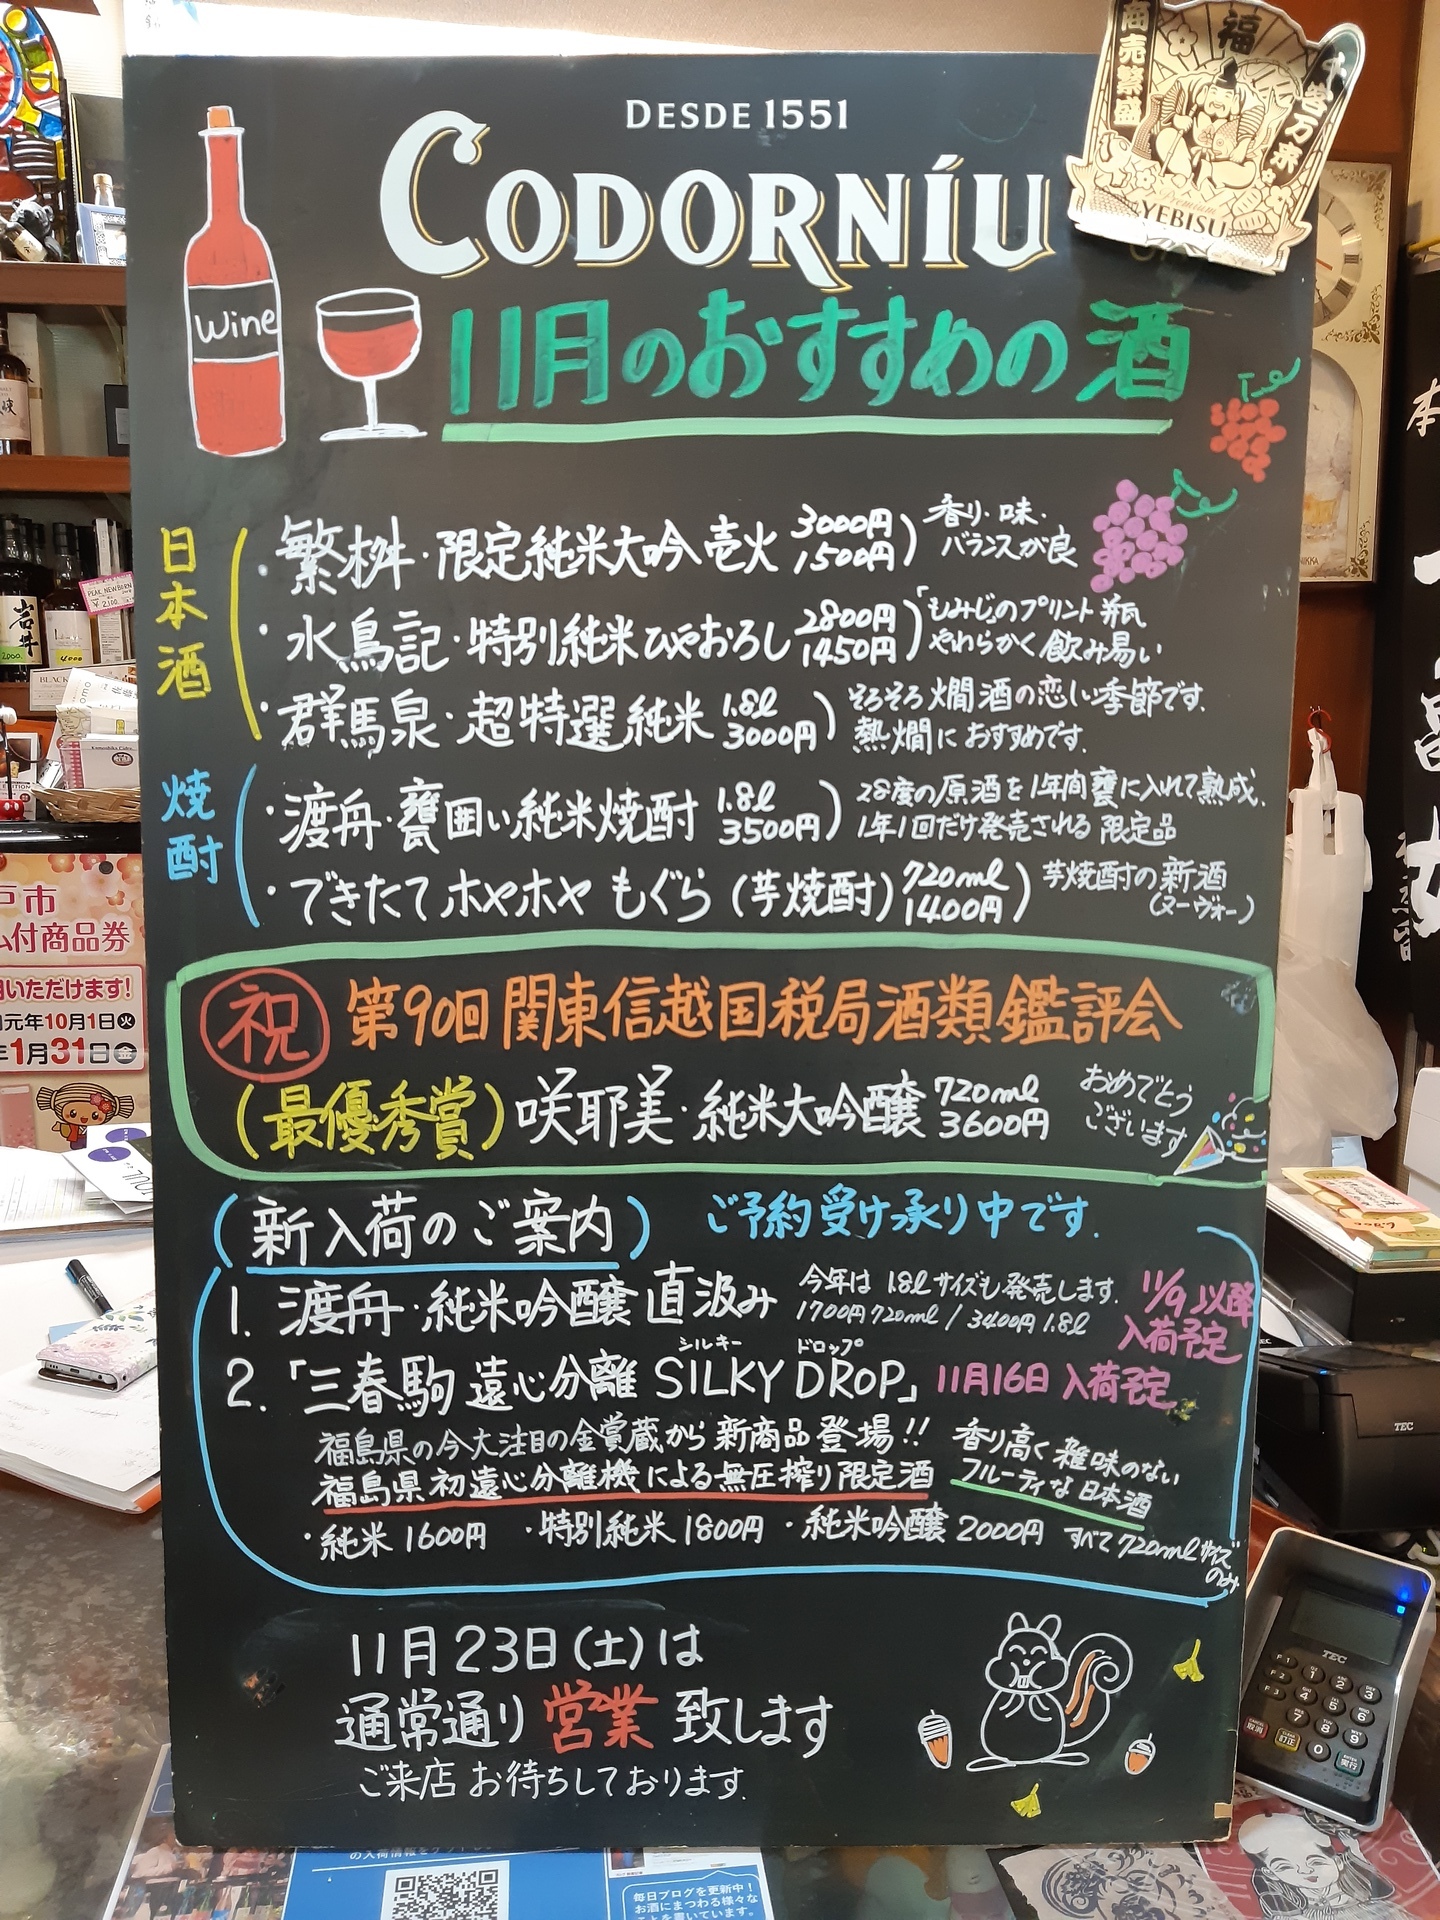 DESDE 1551
CODORNÍU
商売繁盛
福
千客万来
Premium
YEBISU
Wine
11月のおすすめの酒
日本酒
・繁桝・限定純米大吟 壱火 3000円 1,500円) 香り・味・バランスが良
・水鳥記・特別純米ひやおろし 2800円 1450円) 「もみじ」のプリント瓶 やわらかく飲み易い
・群馬泉・超特選純米 1.8l 3000円) そろそろ燗酒の恋しい季節です。熱燗におすすめです。
焼酎
・渡舟・甕囲い純米焼酎 1.8l 3500円) 28度の原酒を1年間甕に入れて熟成。1年1回だけ発売される限定品
・できたてホヤホヤ もぐら (芋焼酎) 720ml 1400円) 芋焼酎の新酒(ヌーヴォー)
祝 第90回関東信越国税局酒類鑑評会
(最優秀賞) 咲耶美・純米大吟醸 720ml 3600円 おめでとうございます
(新入荷のご案内) ご予約受け承り中です.
1. 渡舟・純米吟醸 直汲み 今年は1.8lサイズも発売します. 1700円720ml / 3400円1.8l 11/9以降入荷予定
シルキー ドロップ
2.「三春駒 遠心分離 SILKY DROP」11月16日入荷予定
福島県の今大注目の金賞蔵から新商品登場!!
福島県初遠心分離機による無圧搾り限定酒
香り高く雑味のない
フルーティな日本酒
・純米1600円 ・特別純米1800円 ・純米吟醸2000円 すべて720mlサイズのみ
11月23日(土)は
通常通り営業致します
ご来店お待ちしております.
戸市
付商品券
用いただけます!
元年10月1日火
年1月31日金
PEAK NEW BORN
¥2,100
岩井
2000
4000
TEC
TEC
取消
訂正
実行
の入荷情報を
毎日ブログを更新中!
お酒にまつわる様々な
ことを書いています。